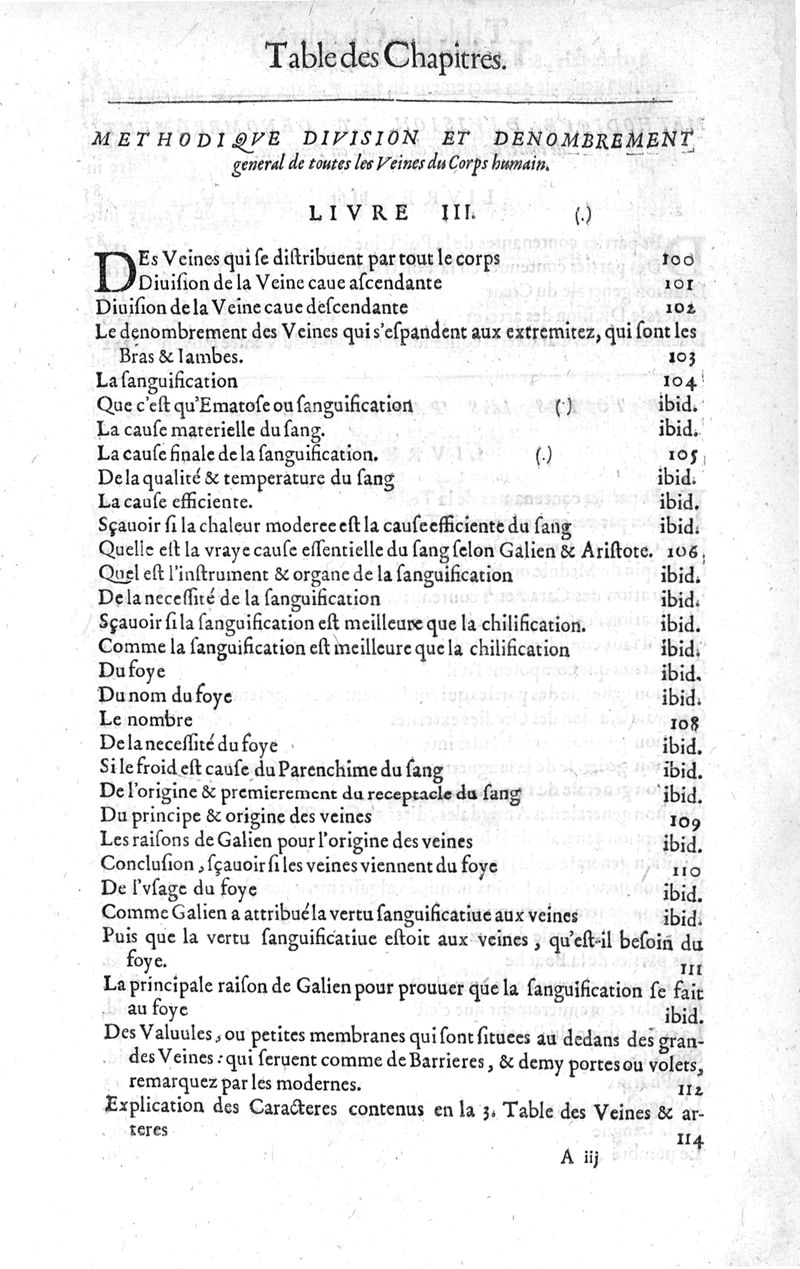 Table des Chapitres.
METHODIQVE DIVISION ET DENOMBREMENT
general de toutes les Veines du Corps humain.
LIVRE III. (.)
DEs Veines qui se distribuent par tout le corps 100
Diuision de la Veine caue ascendante 101
Diuision de la Veine caue descendante 102
Le denombrement des Veines qui s'espandent aux extremitez, qui sont les
Bras & Iambes. 103
La sanguification 104
Que c'est qu'Ematose ou sanguification (.) ibid.
La cause materielle du sang. ibid.
La cause finale de la sanguification. (.) 105
De la qualité & temperature du sang ibid.
La cause efficiente. ibid.
Sçauoir si la chaleur moderee est la cause efficiente du sang ibid.
Quelle est la vraye cause essentielle du sang selon Galien & Aristote. 106
Quel est l'instrument & organe de la sanguification ibid.
De la necessité de la sanguification ibid.
Sçauoir si la sanguification est meilleure que la chilification. ibid.
Comme la sanguification est meilleure que la chilification ibid.
Du foye ibid.
Du nom du foye ibid.
Le nombre 108
De la necessité du foye ibid.
Si le froid est cause du Parenchime du sang ibid.
De l'origine & premierement du receptacle du sang ibid.
Du principe & origine des veines 109
Les raisons de Galien pour l'origine des veines ibid.
Conclusion, sçauoir si les veines viennent du foye 110
De l'vsage du foye ibid.
Comme Galien a attribué la vertu sanguificatiue aux veines ibid.
Puis que la vertu sanguificatiue estoit aux veines, qu'est-il besoin du
foye. 111
La principale raison de Galien pour prouuer que la sanguification se fait
au foye ibid.
Des Valuules, ou petites membranes qui sont situees au dedans des gran-
des Veines: qui seruent comme de Barrieres, & demy portes ou volets,
remarquez par les modernes. 112
Explication des Caracteres contenus en la 3. Table des Veines & ar-
teres 114
A iij